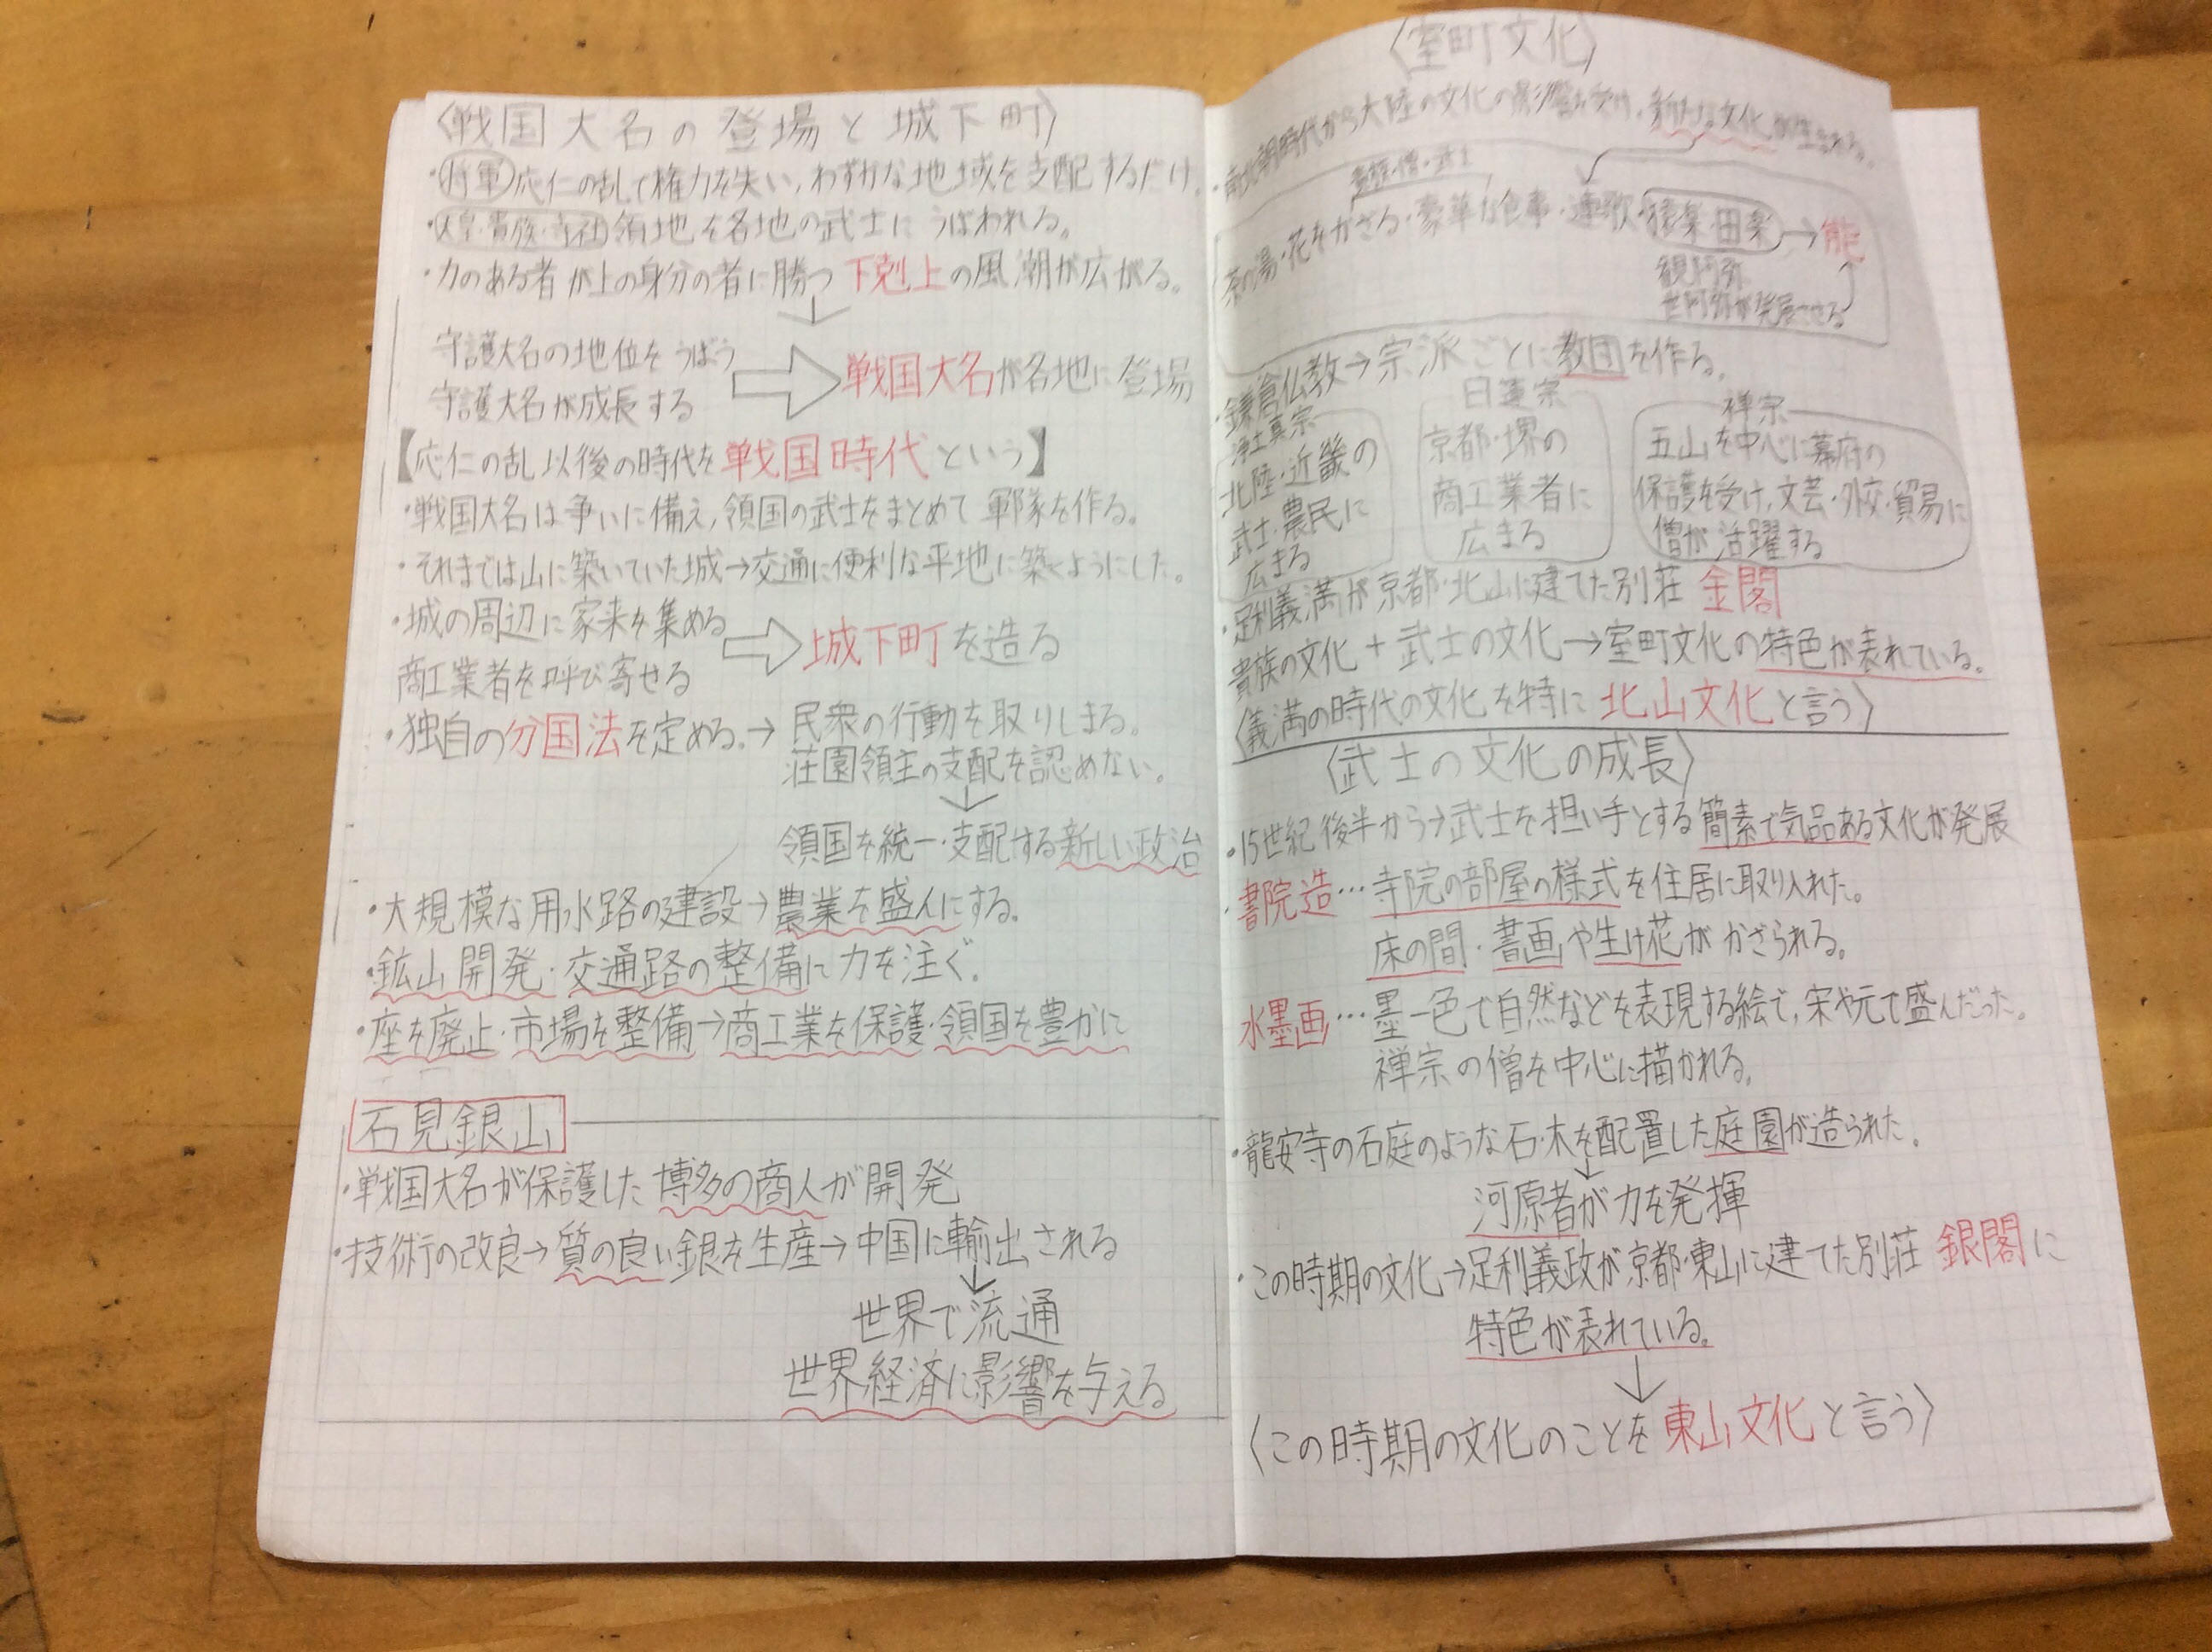 〈戦国大名の登場と城下町〉
・将軍 応仁の乱で権力を失い,わずかな地域を支配するだけ.
・天皇・貴族・寺社 領地を各地の武士にうばわれる。
・力のある者が上の身分の者に勝つ 下剋上の風潮が広がる。
↓
守護大名の地位をうばう
守護大名が成長する
⇒ 戦国大名が各地に登場
【応仁の乱以後の時代を戦国時代という】
・戦国大名は争いに備え,領国の武士をまとめて軍隊を作る。
・それまでは山に築いていた城→交通に便利な平地に築くようにした。
・城の周辺に家来を集める
商工業者を呼び寄せる
⇒ 城下町を造る
・独自の分国法を定める.→ 民衆の行動を取りしまる。
荘園領主の支配を認めない。
↓
領国を統一・支配する新しい政治
・大規模な用水路の建設→農業を盛んにする。
・鉱山開発・交通路の整備に力を注ぐ。
・座を廃止・市場を整備→商工業を保護・領国を豊かに
石見銀山
・戦国大名が保護した博多の商人が開発
・技術の改良→質の良い銀を生産→中国に輸出される
↓
世界で流通
世界経済に影響を与える
〈室町文化〉
・南北朝時代から大陸の文化の影響を受け,新たな文化が生まれる。
貴族・僧・武士
茶の湯・花をかざる・豪華な食事・連歌・猿楽・田楽→能
観阿弥
世阿弥が発展させる
・鎌倉仏教→宗派ごとに教団を作る。
浄土真宗
北陸・近畿の
武士・農民に
広まる
日蓮宗
京都・堺の
商工業者に
広まる
禅宗
五山を中心に幕府の
保護を受け,文芸・外交・貿易に
僧が活躍する
・足利義満が京都・北山に建てた別荘 金閣
貴族の文化+武士の文化→室町文化の特色が表れている。
〈義満の時代の文化を特に北山文化と言う〉
〈武士の文化の成長〉
・15世紀後半から→武士を担い手とする簡素で気品ある文化が発展
・書院造…寺院の部屋の様式を住居に取り入れた。
床の間・書画や生け花がかざられる。
水墨画…墨一色で自然などを表現する絵で,宋や元で盛んだった。
禅宗の僧を中心に描かれる。
・龍安寺の石庭のような石・木を配置した庭園が造られた。
↓
河原者が力を発揮
・この時期の文化→足利義政が京都・東山に建てた別荘 銀閣に
特色が表れている。
↓
〈この時期の文化のことを東山文化と言う〉